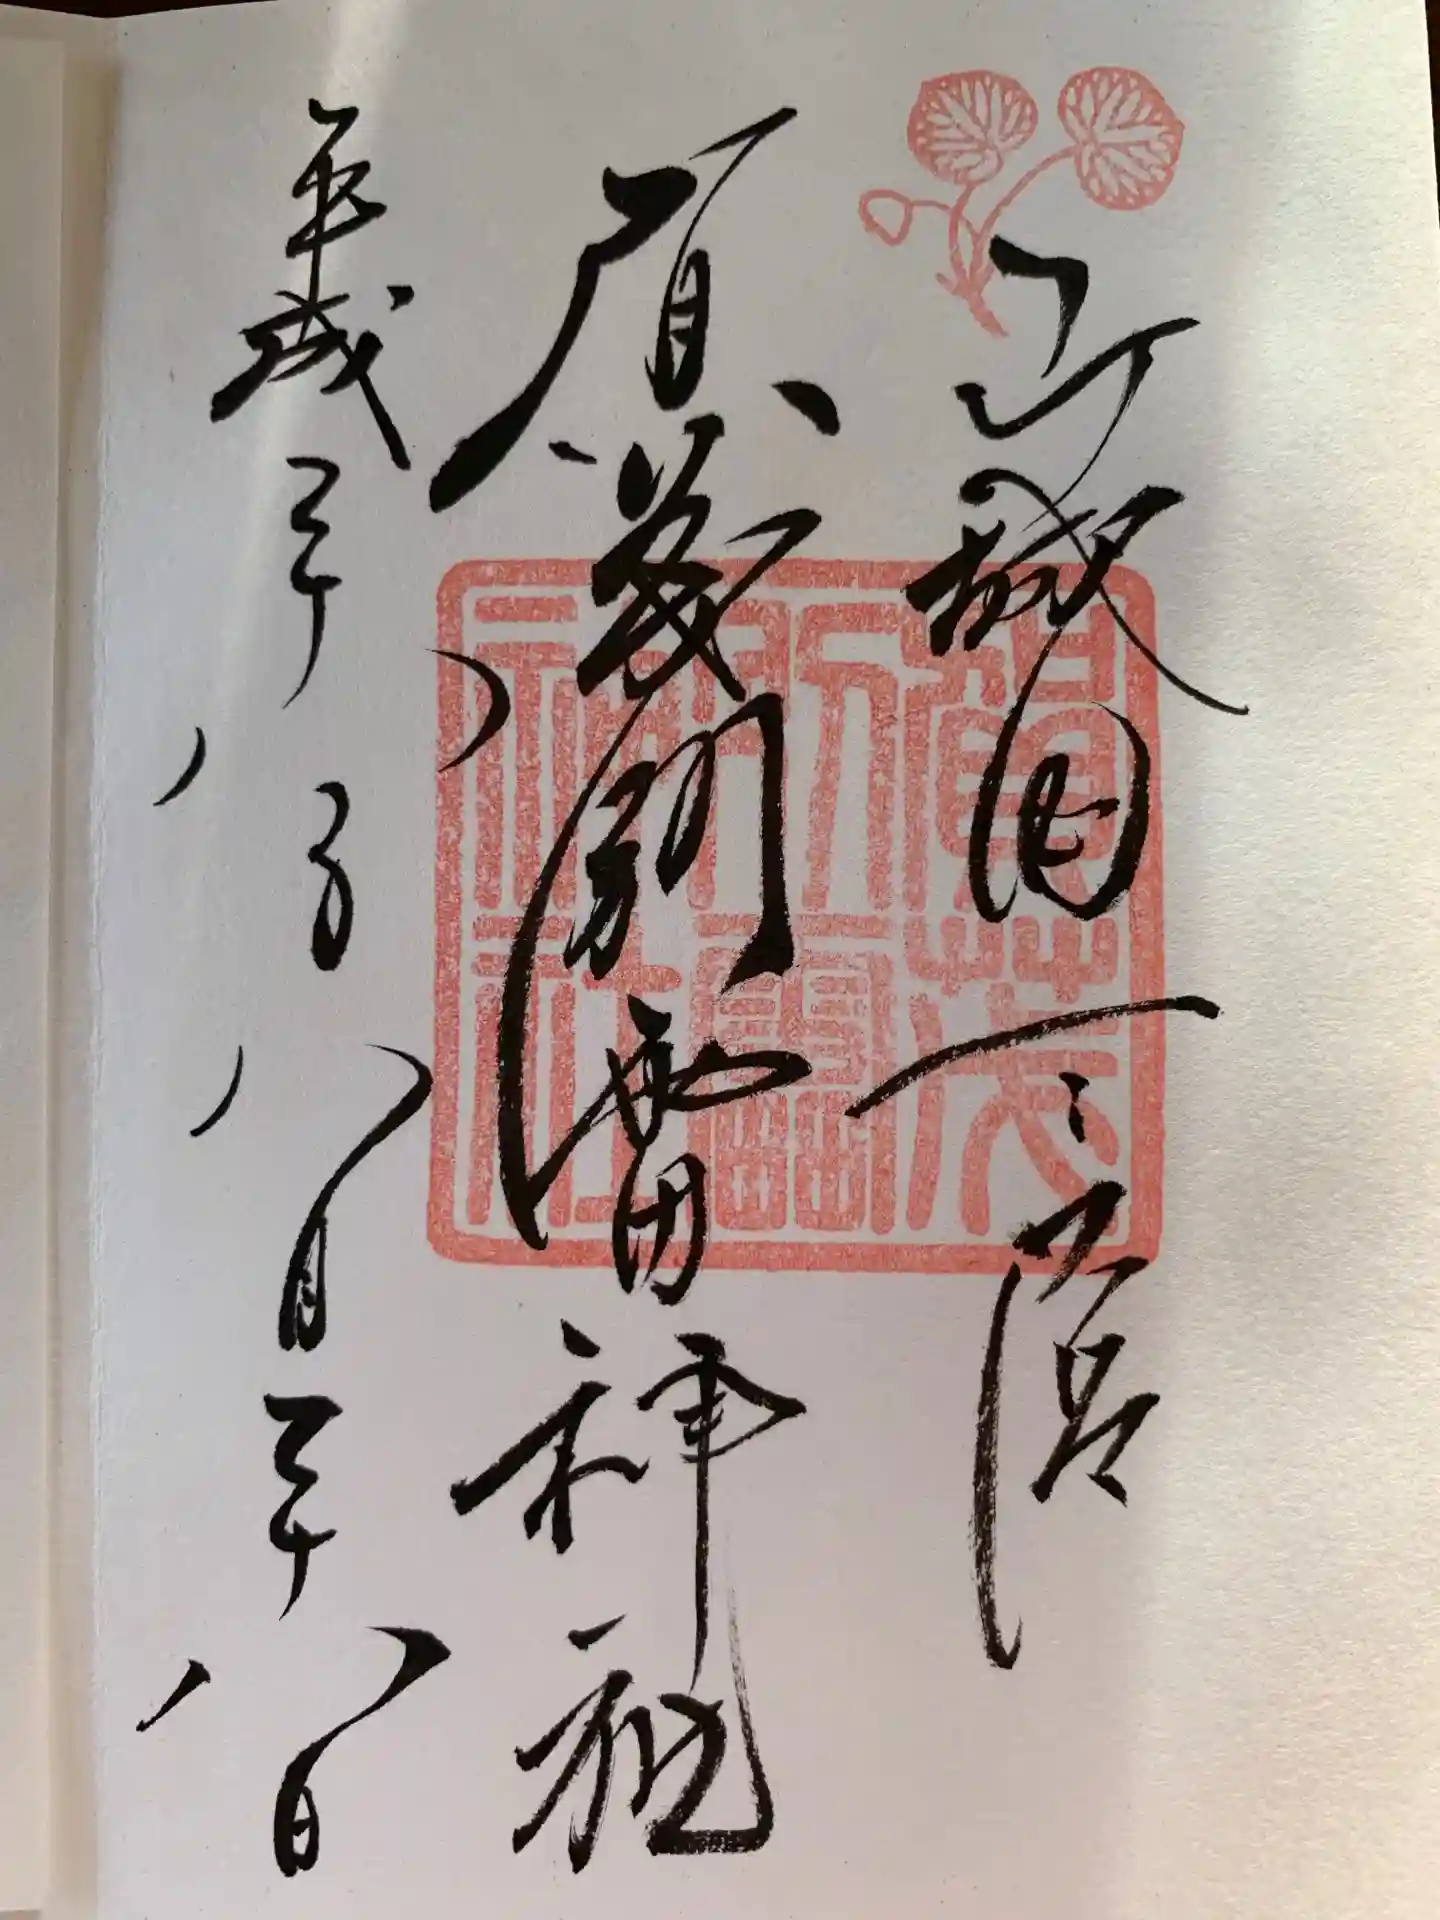 山城国一之宮
賀茂別雷神社
平成二十八年八月二十八日
賀茂別雷神社